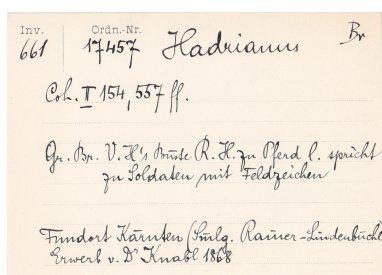 Inv. Ordn.-Nr. Br
661 17457 Hadrianus
Coh. II 154, 557 ff.
Gr. Br. V. H's Büste R. H. zu Pferd l. spricht
zu Soldaten mit Feldzeichen
Fundort Kärnten (Smlg. Rainer-Lindenbüchl
Erwerb v. Dr Knabl 1868